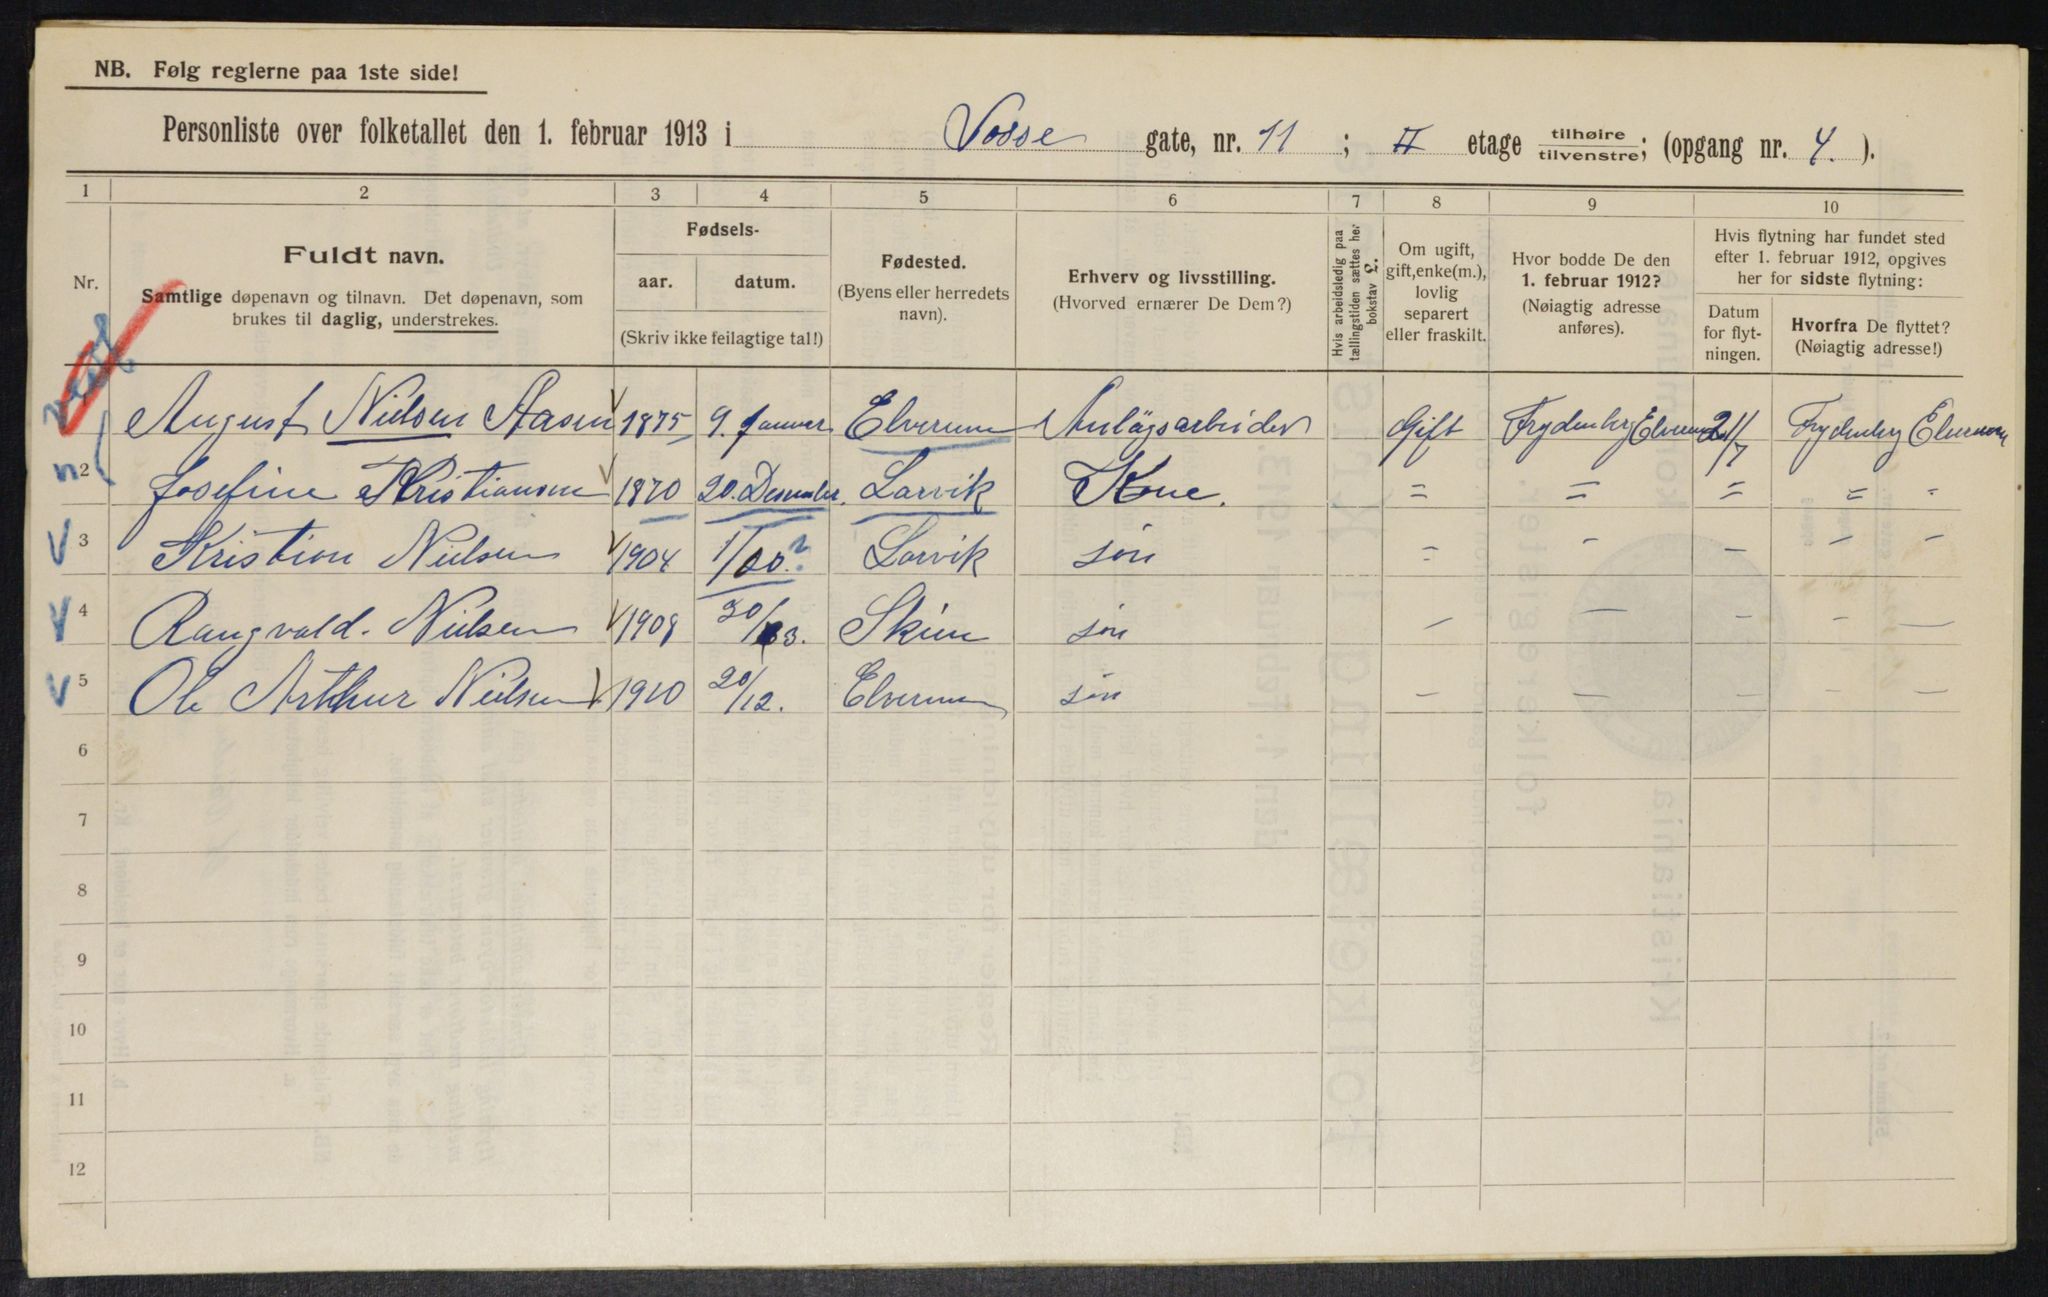 NB. Følg reglerne paa 1ste side!
Personliste over folketallet den 1. februar 1913 i Vosse gate, nr. 11 ; II etage tilhøire / tilvenstre; (opgang nr. 4. ).
1 2 3 4 5 6 7 8 9 10
Nr.
Fuldt navn.
Samtlige døpenavn og tilnavn. Det døpenavn, som
brukes til daglig, understrekes.
Fødsels-
aar. datum.
(Skriv ikke feilagtige tal!)
Fødested.
(Byens eller herredets
navn).
Erhverv og livsstilling.
(Hvorved ernærer De Dem?)
Hvis arbeidsledig paa
tællingstiden sættes her
bokstav L.
Om ugift,
gift, enke(m.),
lovlig
separert
eller fraskilt.
Hvor bodde De den
1. februar 1912?
(Nøiagtig adresse
anføres).
Hvis flytning har fundet sted
efter 1. februar 1912, opgives
her for sidste flytning:
Datum
for flyt-
ningen.
Hvorfra De flyttet?
(Nøiagtig adresse!)
August Nielsen Aasen 1875 9. Januar Elverum Anlägsarbeider Gift Frydenberg Elverum 21/7 Frydenberg Elverum
2 Josefine Kristiansen 1870 20. Desember. Larvik Kone. = = = = =
3 Kristian Nielsen 1904 1/10. ? Larvik søn = - - - -
4 Rangvald. Nielsen 1908 30/3. Skien søn - - - - -
5 Ole Arthur Nielsen 1910 20/12. Elverum søn - - - - -
6
7
8
9
10
11
12